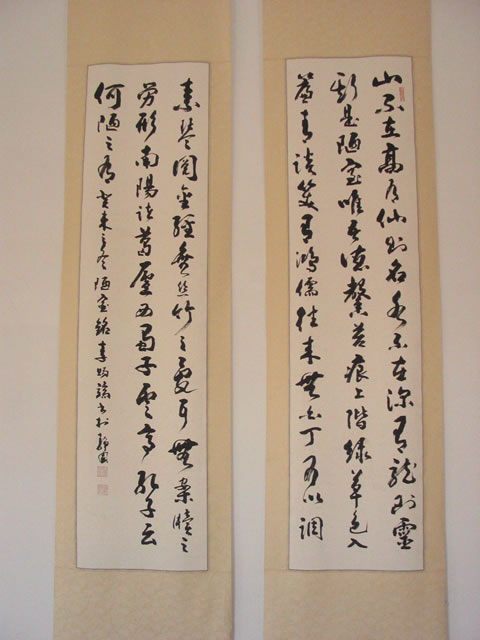 山不在高有仙則名水不在深有龍則靈
斯是陋室唯吾德馨苔痕上階綠草色入
簾青談笑有鴻儒往來無白丁可以調
素琴閱金經無絲竹之亂耳無案牘之
勞形南陽諸葛廬西蜀子雲亭孔子云
何陋之有癸未之冬陋室銘李書於